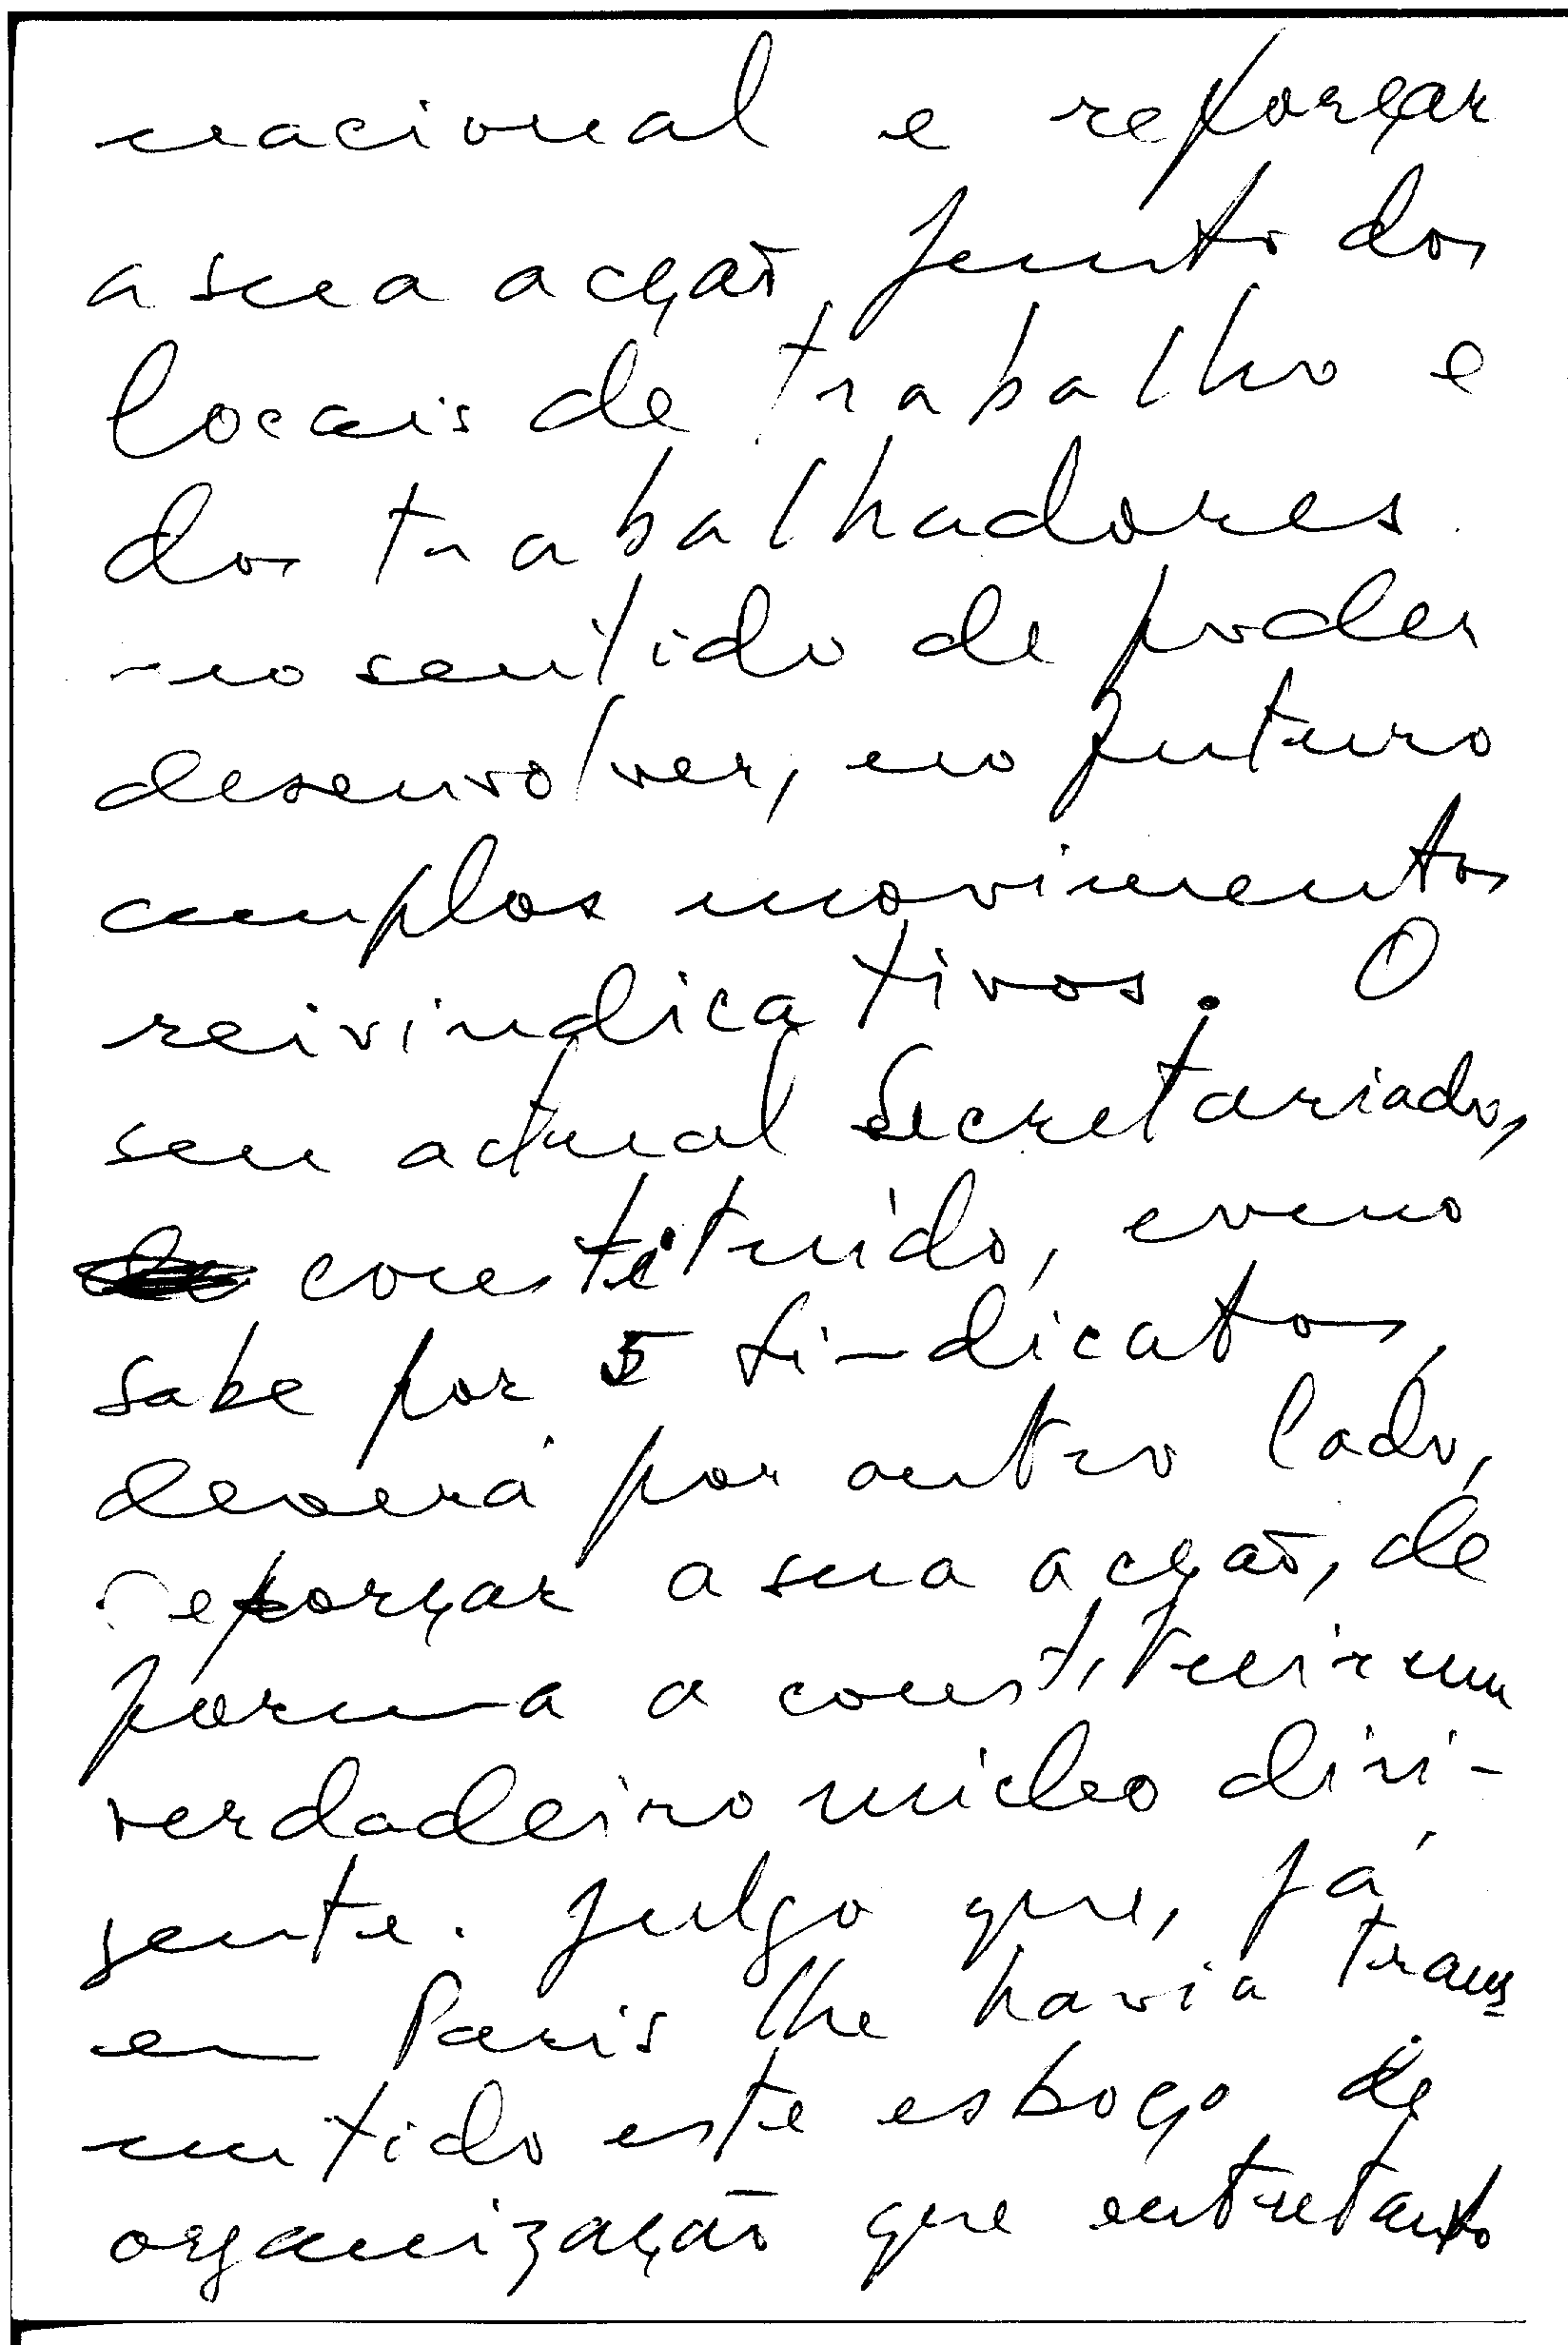 nacional e reforçar
a sua acção junto dos
locais de trabalho e
dos trabalhadores
no sentido de poder
desenvolver, no futuro
amplos movimentos
reivindicativos. O
seu actual Secretariado,
constituído, como
sabe por 5 Sindicatos,
deverá por outro lado,
reforçar a sua acção, de
forma a constituir um
verdadeiro núcleo diri-
gente. Julgo que, já
em Paris lhe havia trans
mitido este esboço de
organização que entretanto